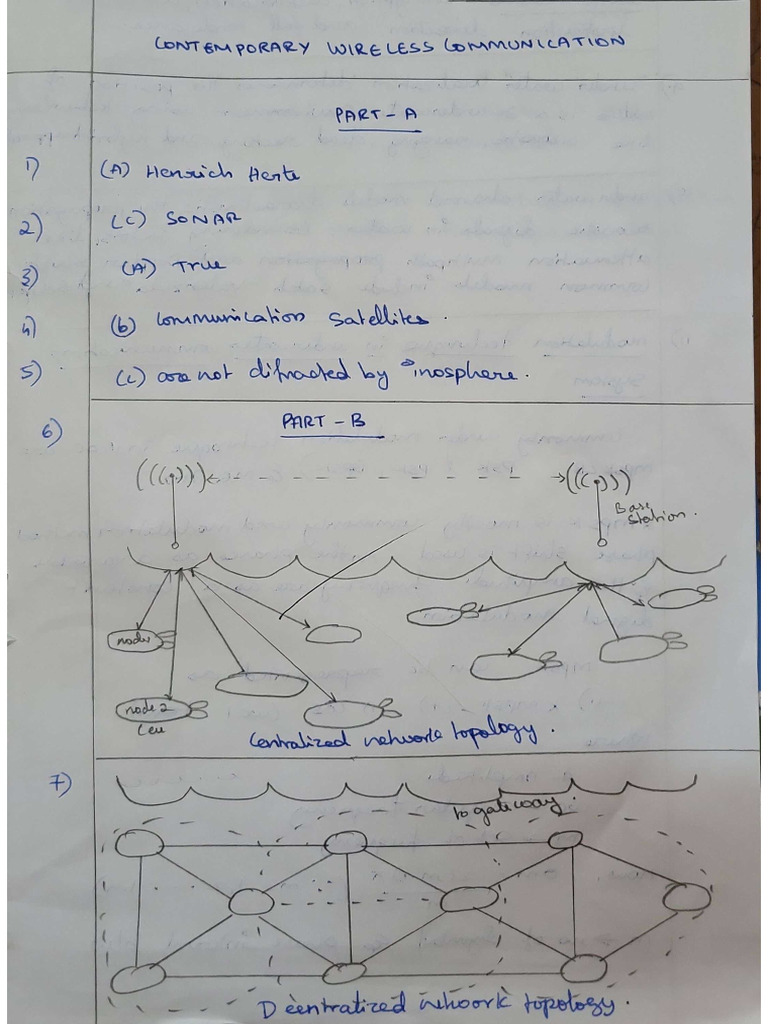 CONTEMPORARY WIRELESS COMMUNICATION
PART-A
1) (A) Henrich Herte
2) (C) SONAR
3) (A) True
4) (b) Communication Satellites.
5) (C) are not difracted by inosphere.
PART-B
6)
(((.))) (((.)))
Base
Station.
node
node 2
Centralized network topology.
7)
to gateway.
Decentratized network topology.